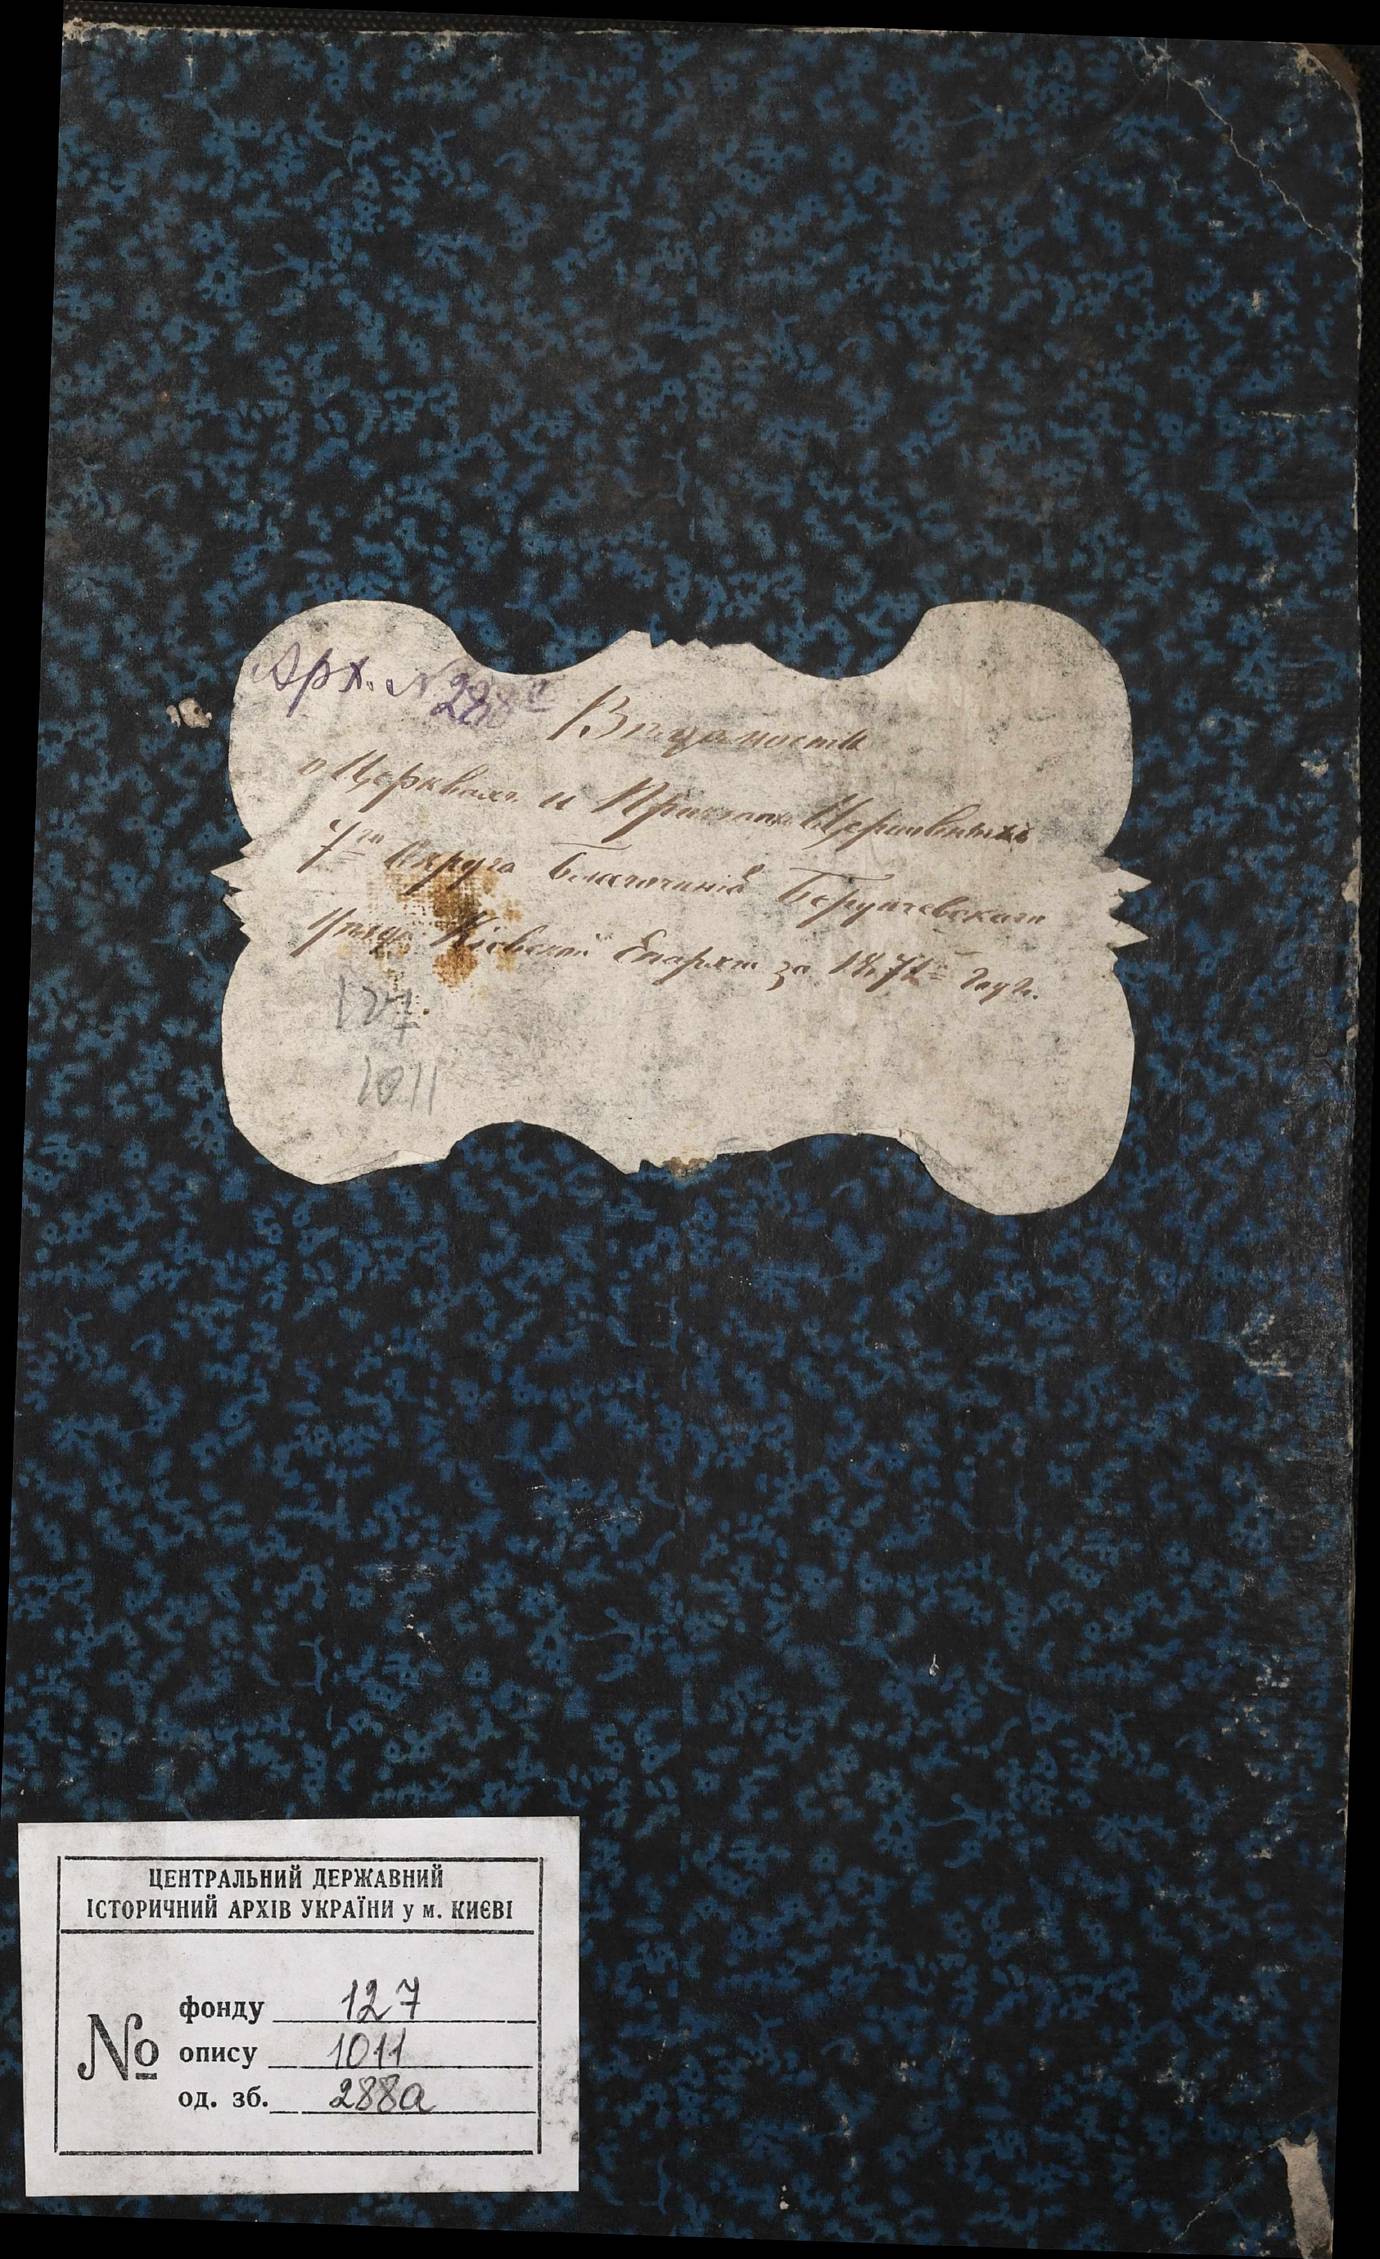 Арх. № 288а
Ведомость
о Церквахъ и Причтахъ Церковныхъ
7го Округа Благочинія Бердичевскаго
уезда Кіевской Епархіи за 1871й годъ.
127
1011
ЦЕНТРАЛЬНИЙ ДЕРЖАВНИЙ
ІСТОРИЧНИЙ АРХІВ УКРАЇНИ у м. КИЄВІ
№
фонду 127
опису 1011
од. зб. 288а